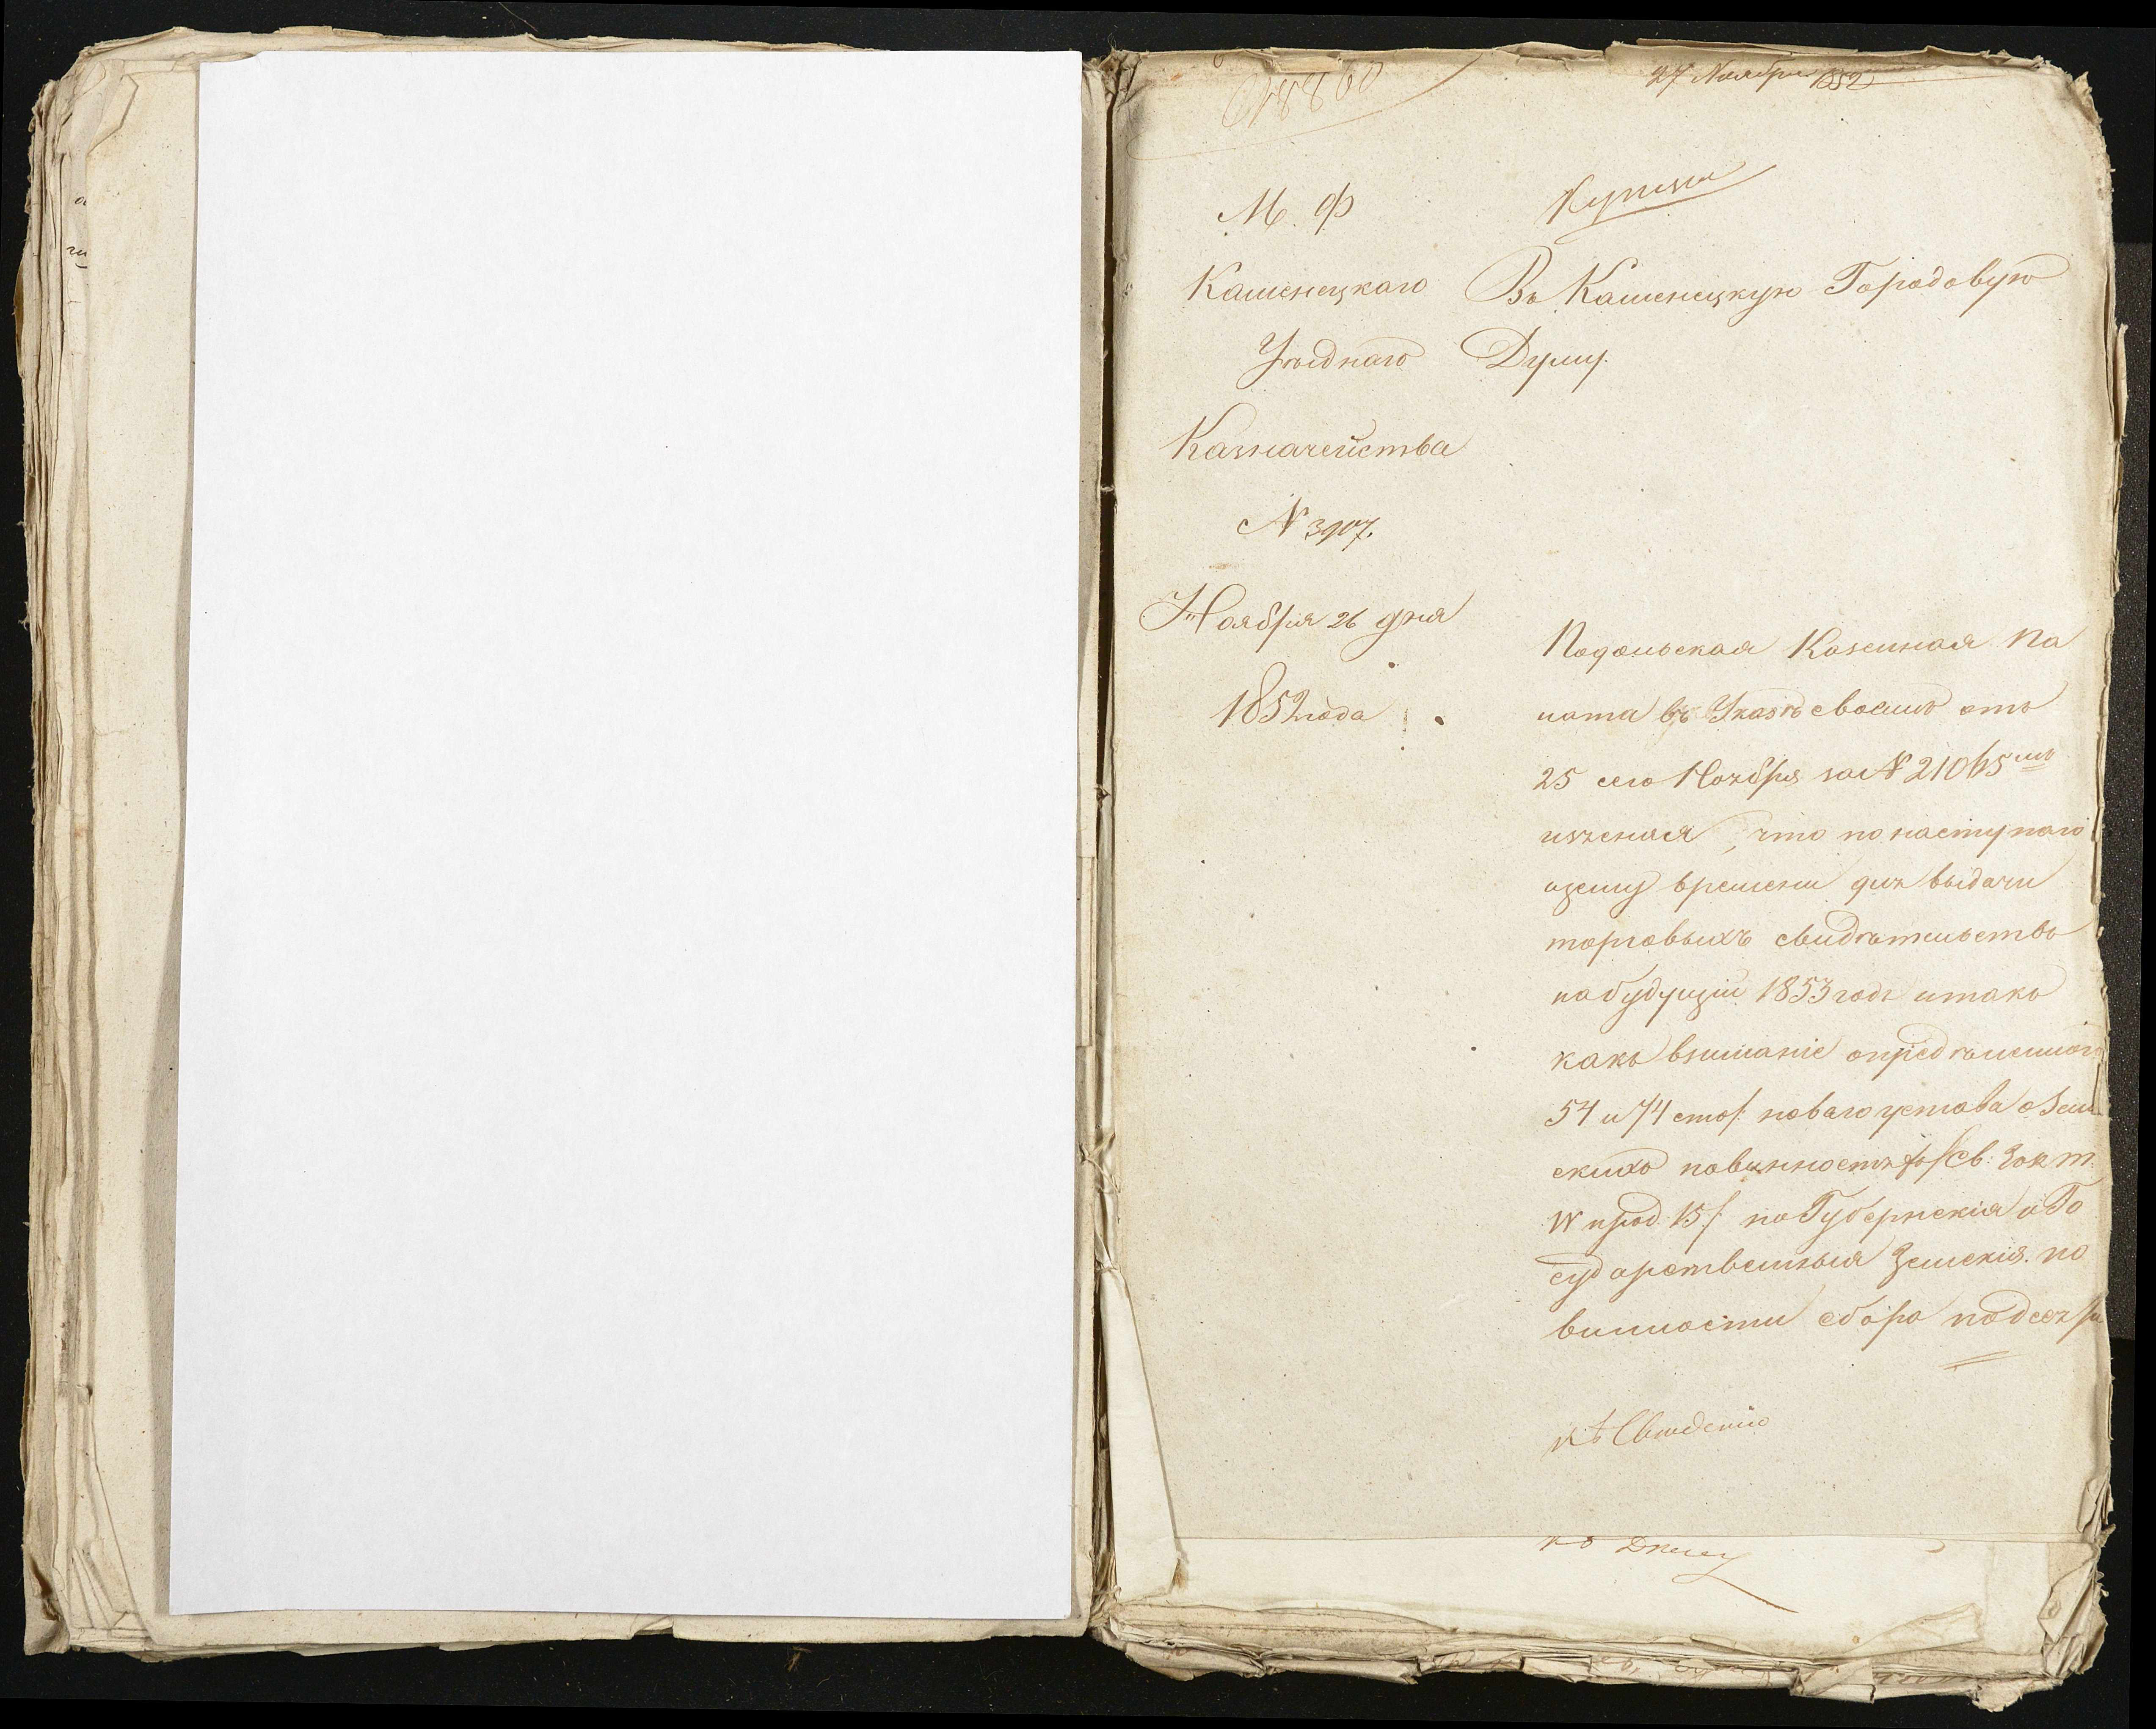 27 Ноября 1852
М. Ф
Каменецкаго
Уѣзднаго
Казначейства
N 3907.
Ноября 26 дня
1852 года
Въ Каменецкую Городовую
Думу.
Подольская Казенная Па
лата въ Указѣ своемъ отъ
25 сего Ноября за N 21065мъ
изъясняя, что по наступаю
щему времени для выдачи
торговыхъ свидѣтельствъ
на будущій 1853 годъ и такъ
какъ взиманіе опредѣленнаго
54 и 74 стат: новаго устава о Зем
скихъ повинностяхъ /Св: Зак т.
IV прод 15/: на Губернскія и Го
сударственныя Земскія по
винности сбора
къ Свѣденію
къ Дѣлу